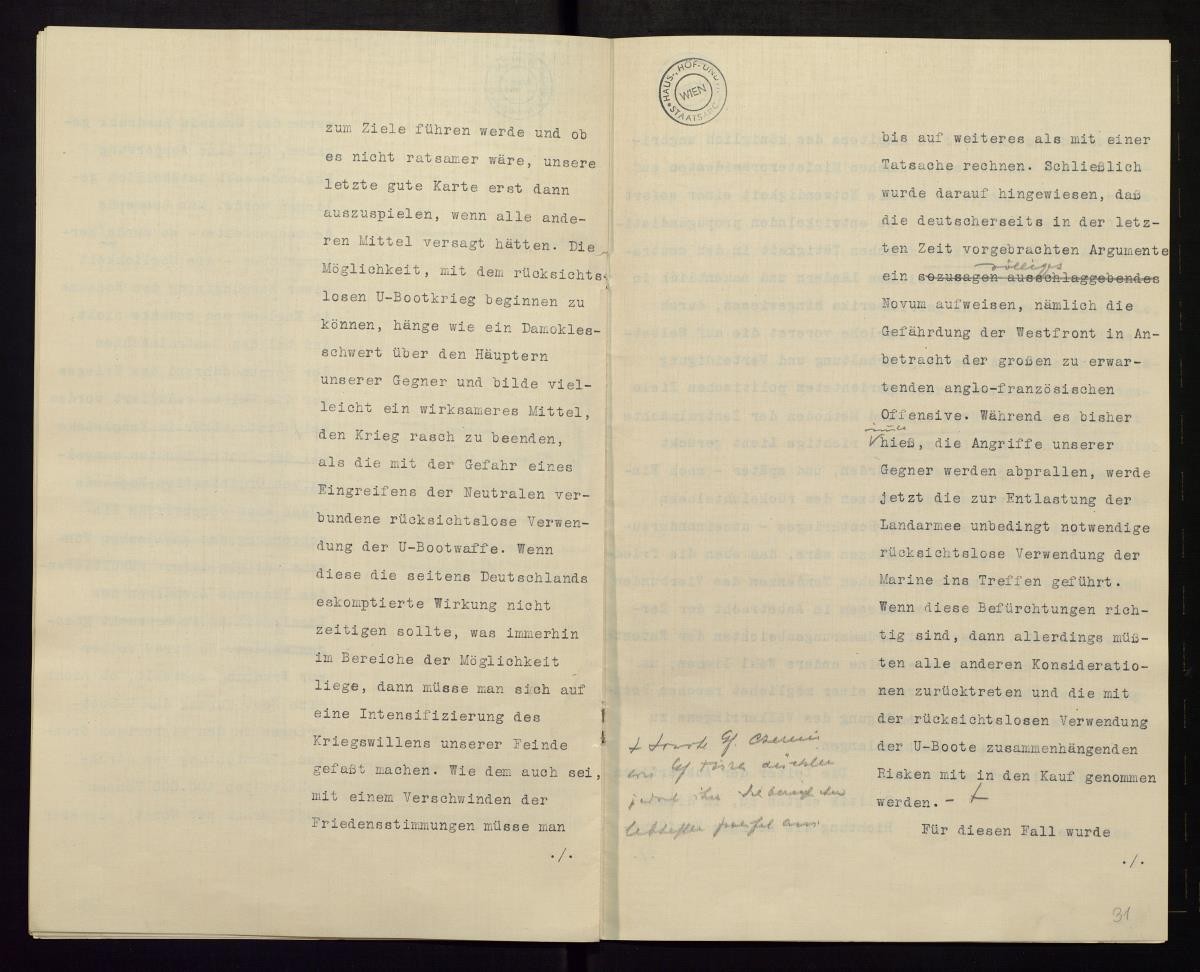 zum Ziele führen werde und ob
es nicht ratsamer wäre, unsere
letzte gute Karte erst dann
auszuspielen, wenn alle ande-
ren Mittel versagt hätten. Die
Möglichkeit, mit dem rücksichts-
losen U-Bootkrieg beginnen zu
können, hänge wie ein Damokles-
schwert über den Häuptern
unserer Gegner und bilde viel-
leicht ein wirksameres Mittel,
den Krieg rasch zu beenden,
als die mit der Gefahr eines
Eingreifens der Neutralen ver-
bundene rücksichtslose Verwen-
dung der U-Bootwaffe. Wenn
diese die seitens Deutschlands
eskomptierte Wirkung nicht
zeitigen sollte, was immerhin
im Bereiche der Möglichkeit
liege, dann müsse man sich auf
eine Intensifizierung des
Kriegswillens unserer Feinde
gefaßt machen. Wie dem auch sei,
mit einem Verschwinden der
Friedensstimmungen müsse man
./.
HAUS-, HOF- UND
STAATSARC
WIEN
bis auf weiteres als mit einer
Tatsache rechnen. Schließlich
wurde darauf hingewiesen, daß
die deutscherseits in der letz-
ten Zeit vorgebrachten Argumente
völliges
ein sozusagen ausschlaggebendes
Novum aufweisen, nämlich die
Gefährdung der Westfront in An-
betracht der großen zu erwar-
tenden anglo-französischen
Offensive. Während es bisher
immer
hieß, die Angriffe unserer
Gegner werden abprallen, werde
jetzt die zur Entlastung der
Landarmee unbedingt notwendige
rücksichtslose Verwendung der
Marine ins Treffen geführt.
Wenn diese Befürchtungen rich-
tig sind, dann allerdings müß-
ten alle anderen Konsideratio-
nen zurücktreten und die mit
der rücksichtslosen Verwendung
der U-Boote zusammenhängenden
Risken mit in den Kauf genommen
werden. - +
+ Sowohl Gf. Czernin
wie Gf Tisza drückten
jedoch ihre diesbezüglichen
lebhaften Zweifel aus
Für diesen Fall wurde
./.
31